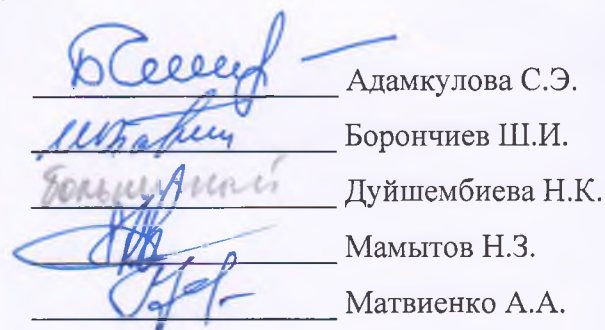 Адамкулова С.Э.
Борончиев Ш.И.
Больничный Дуйшембиева Н.К.
Мамытов Н.З.
Матвиенко А.А.